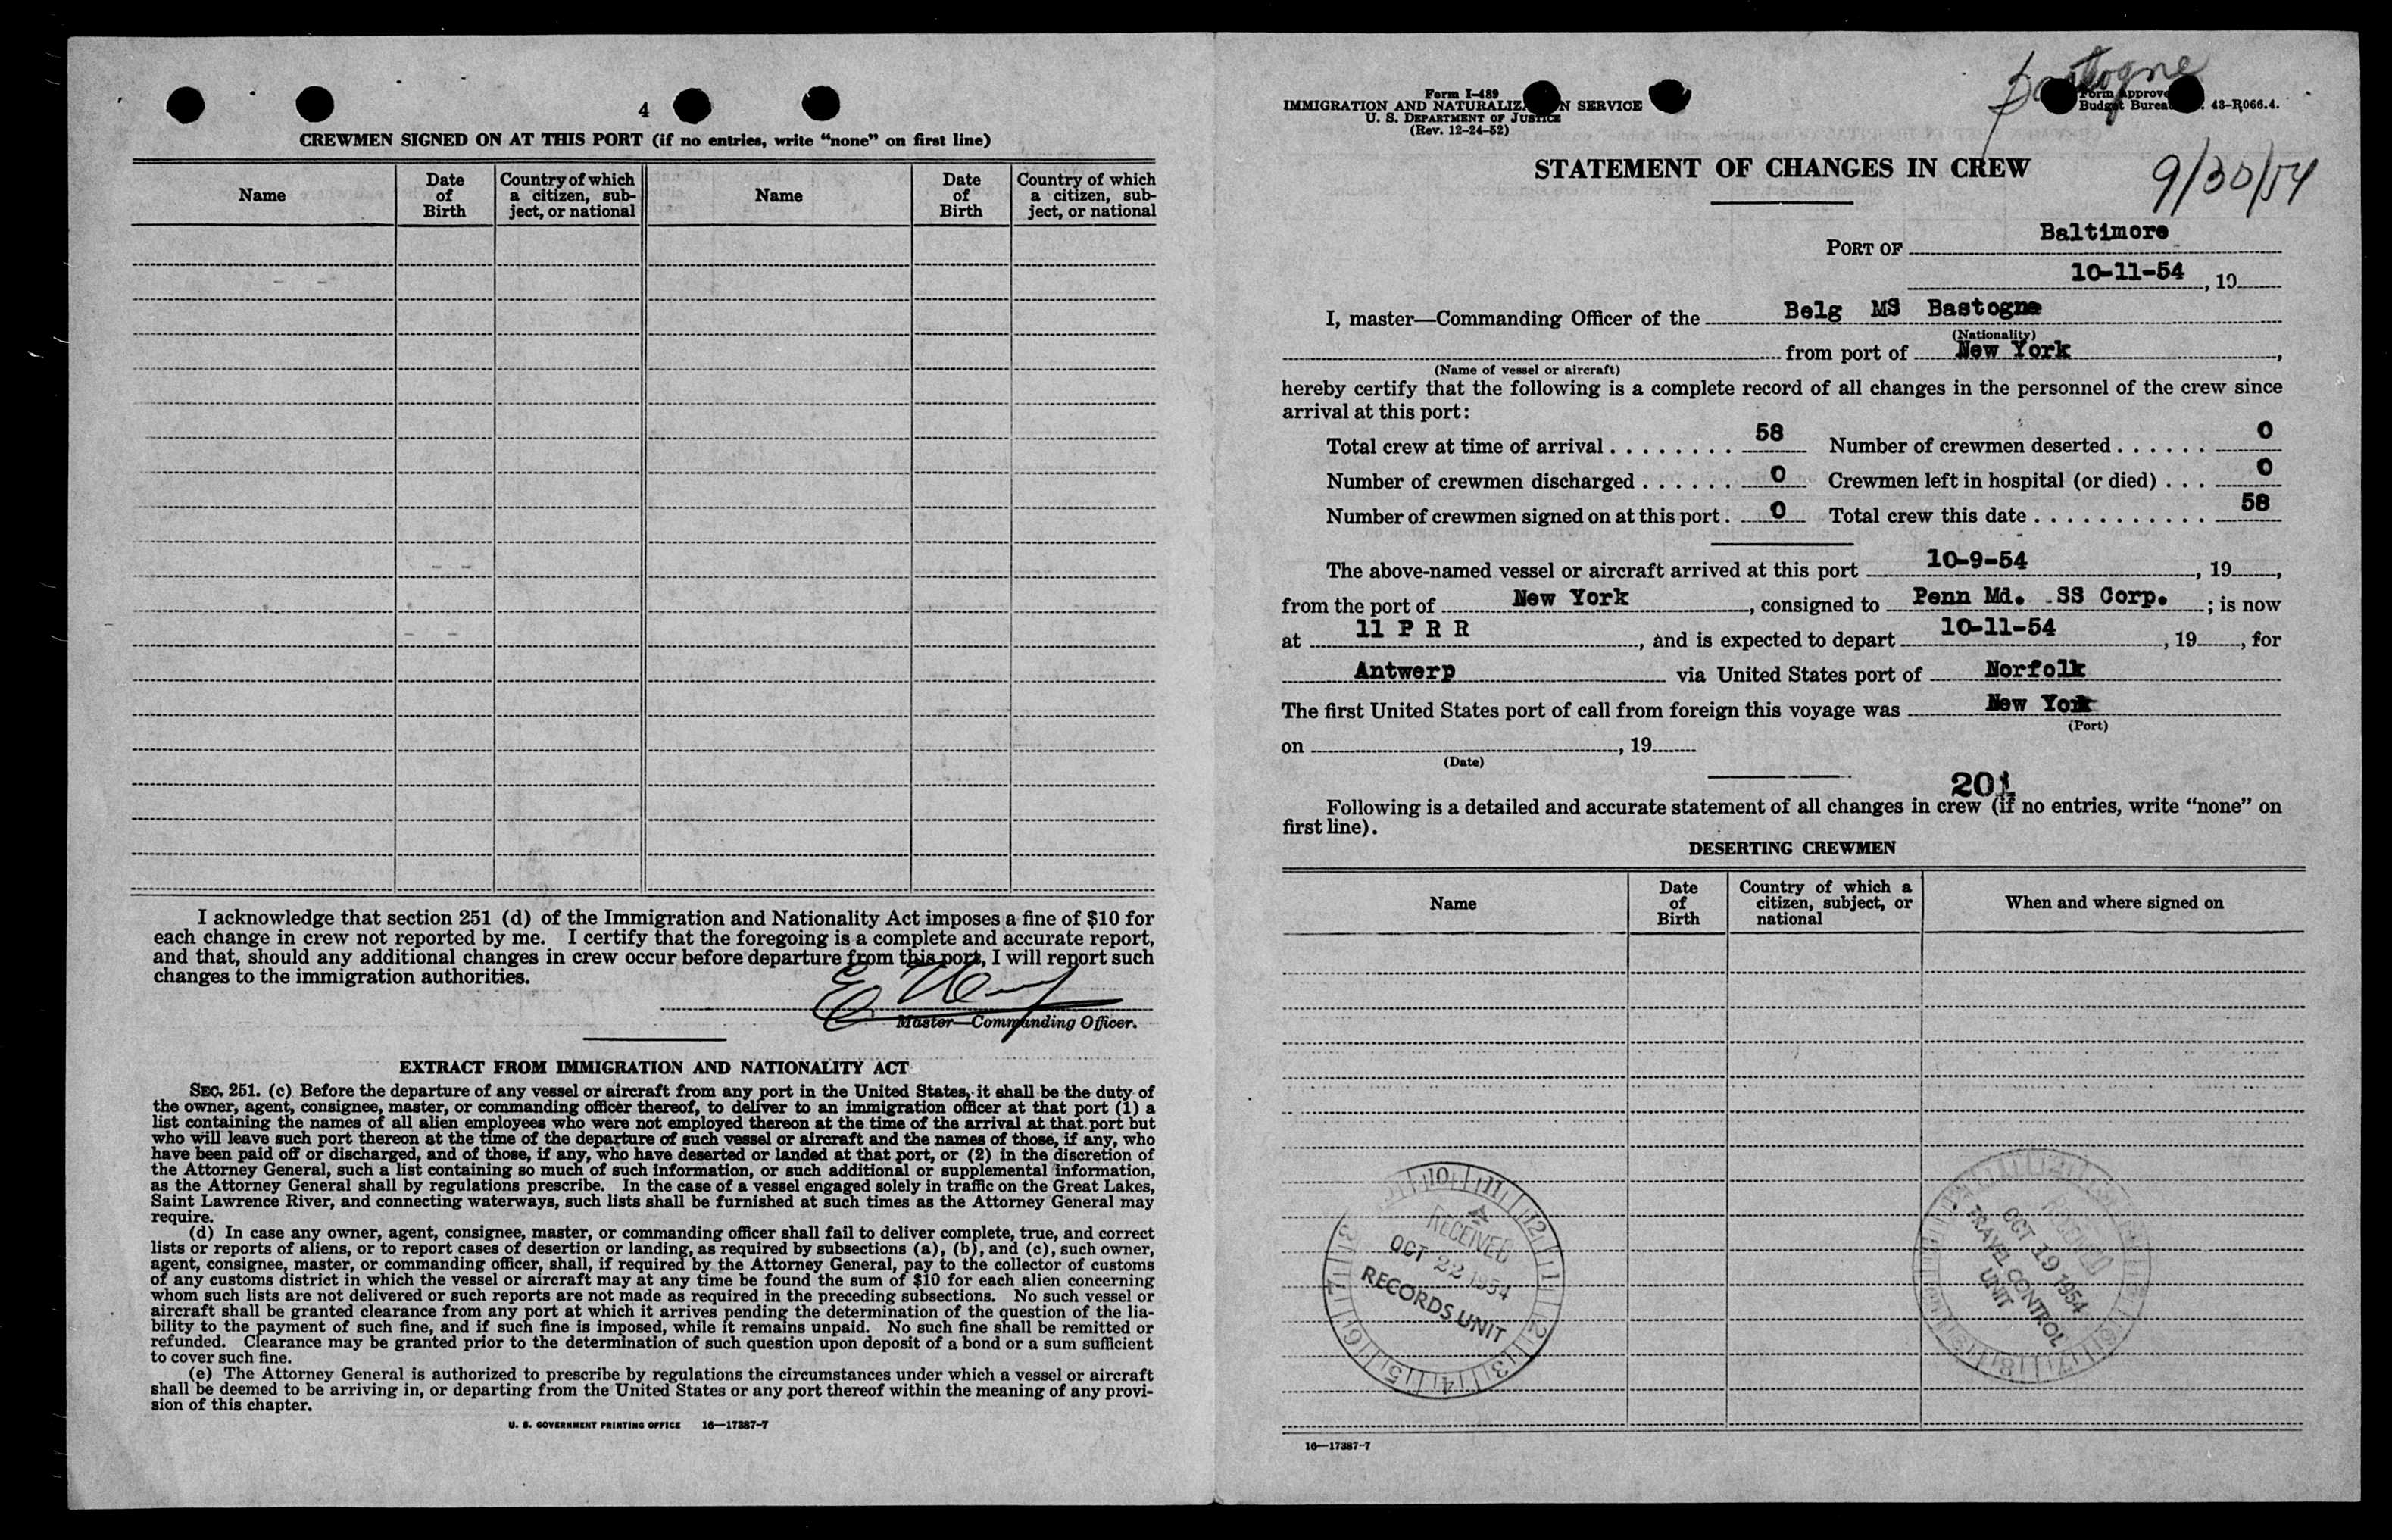 4
CREWMEN SIGNED ON AT THIS PORT (if no entries, write "none" on first line)
Name
Date of Birth
Country of which a citizen, sub-ject, or national
Name
Date of Birth
Country of which a citizen, sub-ject, or national
I acknowledge that section 251 (d) of the Immigration and Nationality Act imposes a fine of $10 for
each change in crew not reported by me. I certify that the foregoing is a complete and accurate report,
and that, should any additional changes in crew occur before departure from this port, I will report such
changes to the immigration authorities.
Master—Commanding Officer.
EXTRACT FROM IMMIGRATION AND NATIONALITY ACT
SEC. 251. (c) Before the departure of any vessel or aircraft from any port in the United States, it shall be the duty of
the owner, agent, consignee, master, or commanding officer thereof, to deliver to an immigration officer at that port (1) a
list containing the names of all alien employees who were not employed thereon at the time of the arrival at that port but
who will leave such port thereon at the time of the departure of such vessel or aircraft and the names of those, if any, who
have been paid off or discharged, and of those, if any, who have deserted or landed at that port, or (2) in the discretion of
the Attorney General, such a list containing so much of such information, or such additional or supplemental information,
as the Attorney General shall by regulations prescribe. In the case of a vessel engaged solely in traffic on the Great Lakes,
Saint Lawrence River, and connecting waterways, such lists shall be furnished at such times as the Attorney General may
require.
(d) In case any owner, agent, consignee, master, or commanding officer shall fail to deliver complete, true, and correct
lists or reports of aliens, or to report cases of desertion or landing, as required by subsections (a), (b), and (c), such owner,
agent, consignee, master, or commanding officer, shall, if required by the Attorney General, pay to the collector of customs
of any customs district in which the vessel or aircraft may at any time be found the sum of $10 for each alien concerning
whom such lists are not delivered or such reports are not made as required in the preceding subsections. No such vessel or
aircraft shall be granted clearance from any port at which it arrives pending the determination of the question of the lia-
bility to the payment of such fine, and if such fine is imposed, while it remains unpaid. No such fine shall be remitted or
refunded. Clearance may be granted prior to the determination of such question upon deposit of a bond or a sum sufficient
to cover such fine.
(e) The Attorney General is authorized to prescribe by regulations the circumstances under which a vessel or aircraft
shall be deemed to be arriving in, or departing from the United States or any port thereof within the meaning of any provi-
sion of this chapter.
U. S. GOVERNMENT PRINTING OFFICE 16—17387-7
Bastogne
Form I-489
IMMIGRATION AND NATURALIZ N SERVICE
U. S. DEPARTMENT OF JUSTICE
(Rev. 12-24-52)
Form Approve
Budget Burea . 43-R066.4.
STATEMENT OF CHANGES IN CREW
9/30/54
PORT OF Baltimore
10-11-54, 19
I, master—Commanding Officer of the Belg MS Bastogne
(Nationality)
from port of New York,
(Name of vessel or aircraft)
hereby certify that the following is a complete record of all changes in the personnel of the crew since
arrival at this port:
Total crew at time of arrival 58 Number of crewmen deserted 0
Number of crewmen discharged 0 Crewmen left in hospital (or died) 0
Number of crewmen signed on at this port. 0 Total crew this date 58
The above-named vessel or aircraft arrived at this port 10-9-54, 19,
from the port of New York, consigned to Penn Md. SS Corp.; is now
at 11 P R R, and is expected to depart 10-11-54, 19, for
Antwerp via United States port of Norfolk
The first United States port of call from foreign this voyage was New York
(Port)
on , 19
(Date)
201
Following is a detailed and accurate statement of all changes in crew (if no entries, write "none" on
first line).
DESERTING CREWMEN
Name
Date of Birth
Country of which a citizen, subject, or national
When and where signed on
RECEIVED
OCT 22 1954
RECORDS UNIT
RECEIVED
OCT 19 1954
TRAVEL CONTROL
UNIT
16—17387-7